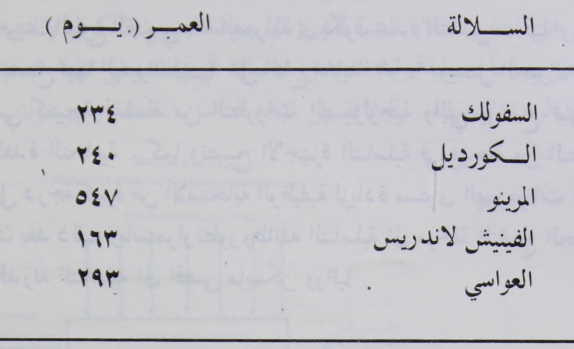 الســـلالة العمـــر (.يـــوم)
السفولك ٢٣٤
الـكورديل ٢٤٠
المرينو ٥٤٧
الفينيش لاندريس ١٩٣
العواسي ٢٩٣